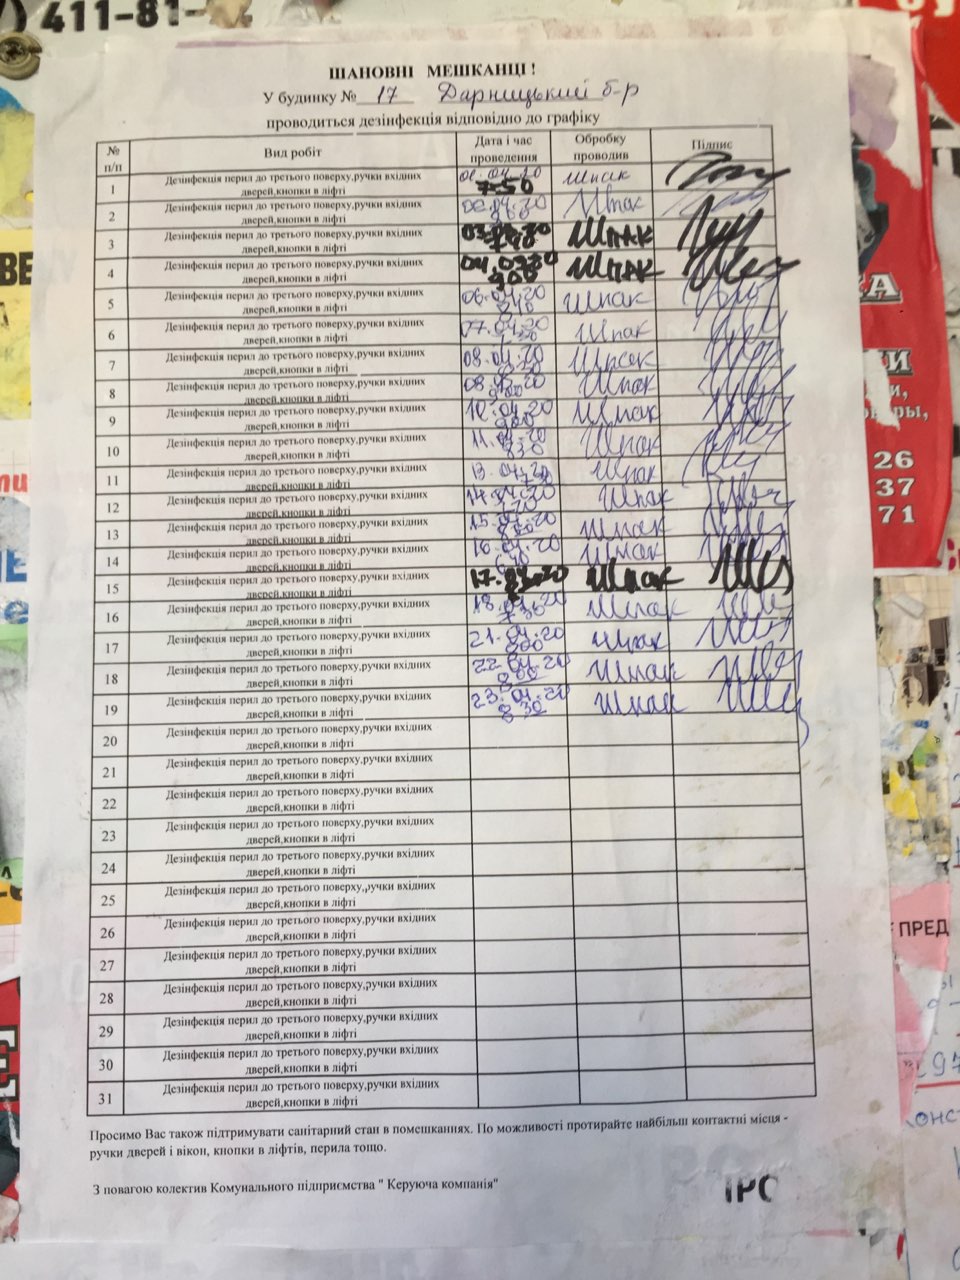 411-81-
ШАНОВНІ МЕШКАНЦІ !
У будинку № 17 Дарницький б-р
проводиться дезінфекція відповідно до графіку
№ п/п Вид робіт Дата і час проведення Обробку проводив Підпис
1 Дезінфекція перил до третього поверху,ручки вхідних дверей,кнопки в ліфті 7-50 Шпак
2 Дезінфекція перил до третього поверху,ручки вхідних дверей,кнопки в ліфті 02.04.20 Шпак
3 Дезінфекція перил до третього поверху,ручки вхідних дверей,кнопки в ліфті Шпак
4 Дезінфекція перил до третього поверху,ручки вхідних дверей,кнопки в ліфті 900 Шпак
5 Дезінфекція перил до третього поверху,ручки вхідних дверей,кнопки в ліфті 06.04.20 Шпак
6 Дезінфекція перил до третього поверху,ручки вхідних дверей,кнопки в ліфті 07.04.20 Шпак
7 Дезінфекція перил до третього поверху,ручки вхідних дверей,кнопки в ліфті 08.04.20 Шпак
8 Дезінфекція перил до третього поверху,ручки вхідних дверей,кнопки в ліфті Шпак
9 Дезінфекція перил до третього поверху,ручки вхідних дверей,кнопки в ліфті 10.04.20 900 Шпак
10 Дезінфекція перил до третього поверху,ручки вхідних дверей,кнопки в ліфті 11.04.20 830 Шпак
11 Дезінфекція перил до третього поверху,ручки вхідних дверей,кнопки в ліфті 13.04.20 Шпак
12 Дезінфекція перил до третього поверху,ручки вхідних дверей,кнопки в ліфті 14.04.20 Шпак
13 Дезінфекція перил до третього поверху,ручки вхідних дверей,кнопки в ліфті 15.04.20 Шпак
14 Дезінфекція перил до третього поверху,ручки вхідних дверей,кнопки в ліфті 16.04.20 Шпак
15 Дезінфекція перил до третього поверху,ручки вхідних дверей,кнопки в ліфті Шпак
16 Дезінфекція перил до третього поверху,ручки вхідних дверей,кнопки в ліфті 18.04.20 730 Шпак
17 Дезінфекція перил до третього поверху,ручки вхідних дверей,кнопки в ліфті 21.04.20 800 Шпак
18 Дезінфекція перил до третього поверху,ручки вхідних дверей,кнопки в ліфті 22.04.20 800 Шпак
19 Дезінфекція перил до третього поверху,ручки вхідних дверей,кнопки в ліфті 23.04.20 830 Шпак
20 Дезінфекція перил до третього поверху,ручки вхідних дверей,кнопки в ліфті
21 Дезінфекція перил до третього поверху,ручки вхідних дверей,кнопки в ліфті
22 Дезінфекція перил до третього поверху,ручки вхідних дверей,кнопки в ліфті
23 Дезінфекція перил до третього поверху,ручки вхідних дверей,кнопки в ліфті
24 Дезінфекція перил до третього поверху,ручки вхідних дверей,кнопки в ліфті
25 Дезінфекція перил до третього поверху,ручки вхідних дверей,кнопки в ліфті
26 Дезінфекція перил до третього поверху,ручки вхідних дверей,кнопки в ліфті
27 Дезінфекція перил до третього поверху,ручки вхідних дверей,кнопки в ліфті
28 Дезінфекція перил до третього поверху,ручки вхідних дверей,кнопки в ліфті
29 Дезінфекція перил до третього поверху,ручки вхідних дверей,кнопки в ліфті
30 Дезінфекція перил до третього поверху,ручки вхідних дверей,кнопки в ліфті
31 Дезінфекція перил до третього поверху,ручки вхідних дверей,кнопки в ліфті
Просимо Вас також підтримувати санітарний стан в помешканнях. По можливості протирайте найбільш контактні місця -
ручки дверей і вікон, кнопки в ліфтів, перила тощо.
З повагою колектив Комунального підприємства " Керуюча компанія"
26
37
71
ПРЕД